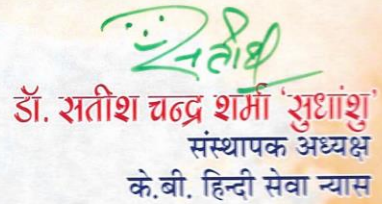 सतीश
डॉ. सतीश चन्द्र शर्मा 'सुधांशु'
संस्थापक अध्यक्ष
के.बी. हिन्दी सेवा न्यास